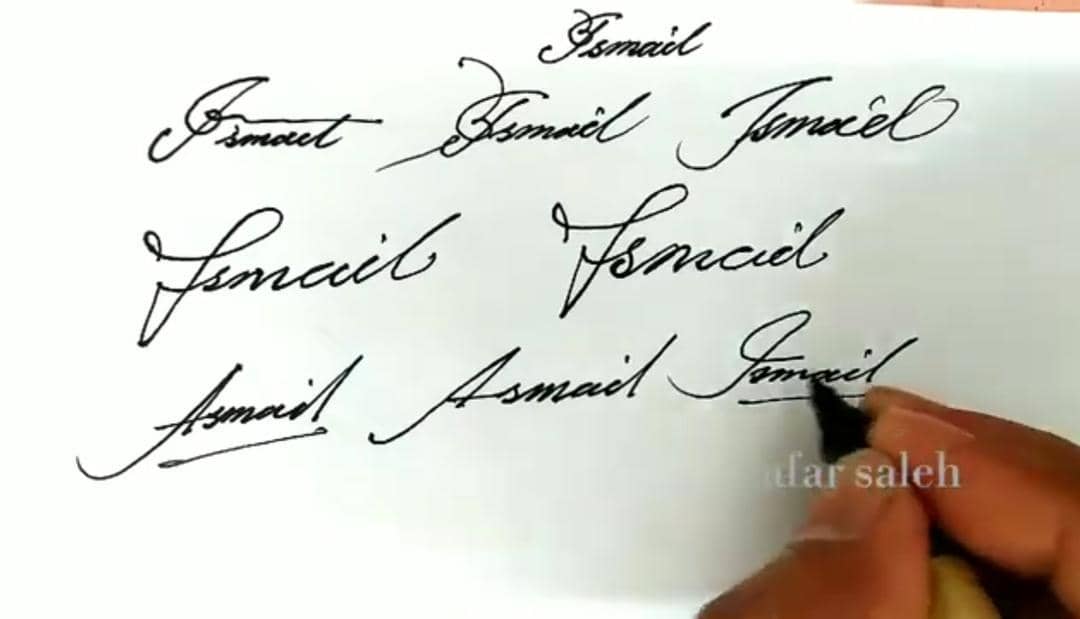 Ismail
Ismael Ismail Ismail
Ismail Ismail
Asmail Asmail Ismail
afar saleh